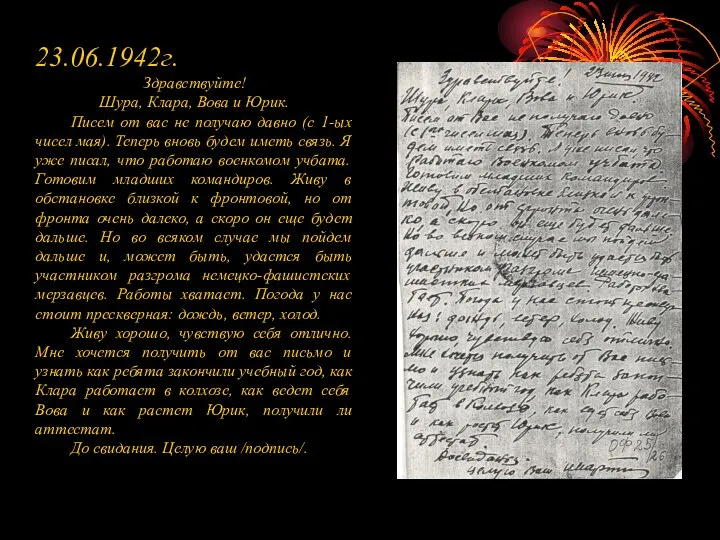 23.06.1942г.
Здравствуйте!
Шура, Клара, Вова и Юрик.
Писем от вас не получаю давно (с 1-ых
чисел мая). Теперь вновь будем иметь связь. Я
уже писал, что работаю военкомом учбата.
Готовим младших командиров. Живу в
обстановке близкой к фронтовой, но от
фронта очень далеко, а скоро он еще будет
дальше. Но во всяком случае мы пойдем
дальше и, может быть, удастся быть
участником разгрома немецко-фашистских
мерзавцев. Работы хватает. Погода у нас
стоит прескверная: дождь, ветер, холод.
Живу хорошо, чувствую себя отлично.
Мне хочется получить от вас письмо и
узнать как ребята закончили учебный год, как
Клара работает в колхозе, как ведет себя
Вова и как растет Юрик, получили ли
аттестат.
До свидания. Целую ваш /подпись/.
Здравствуйте! 1942
Шура, Клара, Вова и Юрик.
Писем от Вас не получаю давно
(с 1ых чисел мая). Теперь вновь бу-
дем иметь связь. Я уже писал что
работаю Военкомом учбата.
Готовим младших командиров.
Живу в обстановке близкой к фрон-
товой, но от фронта очень дале-
ко а скоро он еще будет дальше.
Но во всяком случае мы пойдем
дальше и может быть удастся быть
участником разгрома немецко-фа-
шистких мерзавцев. Работы хва-
тает. Погода у нас стоит пресквер-
ная: дождь, ветер, холод. Живу
хорошо, чувствую себя отлично.
Мне хочется получить от Вас пись-
мо и узнать как ребята закон-
чили учебный год, как Клара рабо-
тает в колхозе, как ведет себя Вова
и как растет Юрик, получили ли
аттестат.
До свидания.
Целую Ваш
ОФ 25
/26